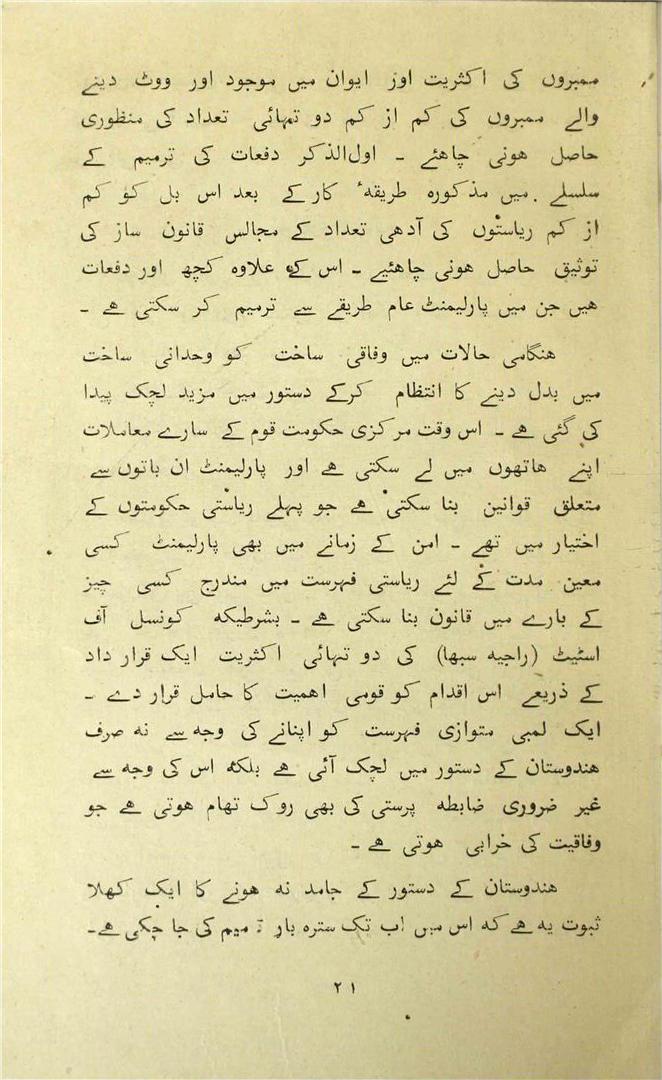 ممبروں کی اکثریت اور ایوان میں موجود اور ووٹ دینے
والے ممبروں کی کم از کم دو تہائی تعداد کی منظوری
حاصل ہونی چاہئے ۔ اول‌الذکر دفعات کی ترمیم کے
سلسلے میں مذکورہ طریقۂ کار کے بعد اس بل کو کم
از کم ریاستوں کی آدھی تعداد کے مجالس قانون ساز کی
توثیق حاصل ہونی چاہئیے ۔ اس کے علاوہ کچھ اور دفعات
ہیں جن میں پارلیمنٹ عام طریقے سے ترمیم کر سکتی ہے ۔
ہنگامی حالات میں وفاقی ساخت کو وحدانی ساخت
میں بدل دینے کا انتظام کرکے دستور میں مزید لچک پیدا
کی گئی ہے ۔ اس وقت مرکزی حکومت قوم کے سارے معاملات
اپنے ہاتھوں میں لے سکتی ہے اور پارلیمنٹ ان باتوں سے
متعلق قوانین بنا سکتی ہے جو پہلے ریاستی حکومتوں کے
اختیار میں تھے ۔ امن کے زمانے میں بھی پارلیمنٹ کسی
معین مدت کے لئے ریاستی فہرست میں مندرج کسی چیز
کے بارے میں قانون بنا سکتی ہے ۔ بشرطیکہ کونسل آف
اسٹیٹ (راجیہ سبھا) کی دو تہائی اکثریت ایک قرار داد
کے ذریعے اس اقدام کو قومی اہمیت کا حامل قرار دے ۔
ایک لمبی متوازی فہرست کو اپنانے کی وجہ سے نہ صرف
ہندوستان کے دستور میں لچک آئی ہے بلکہ اس کی وجہ سے
غیر ضروری ضابطہ پرستی کی بھی روک تھام ہوتی ہے جو
وفاقیت کی خرابی ہوتی ہے ۔
ہندوستان کے دستور کے جامد نہ ہونے کا ایک کھلا
ثبوت یہ ہے کہ اس میں اب تک سترہ بار ترمیم کی جا چکی ہے۔
۲۱